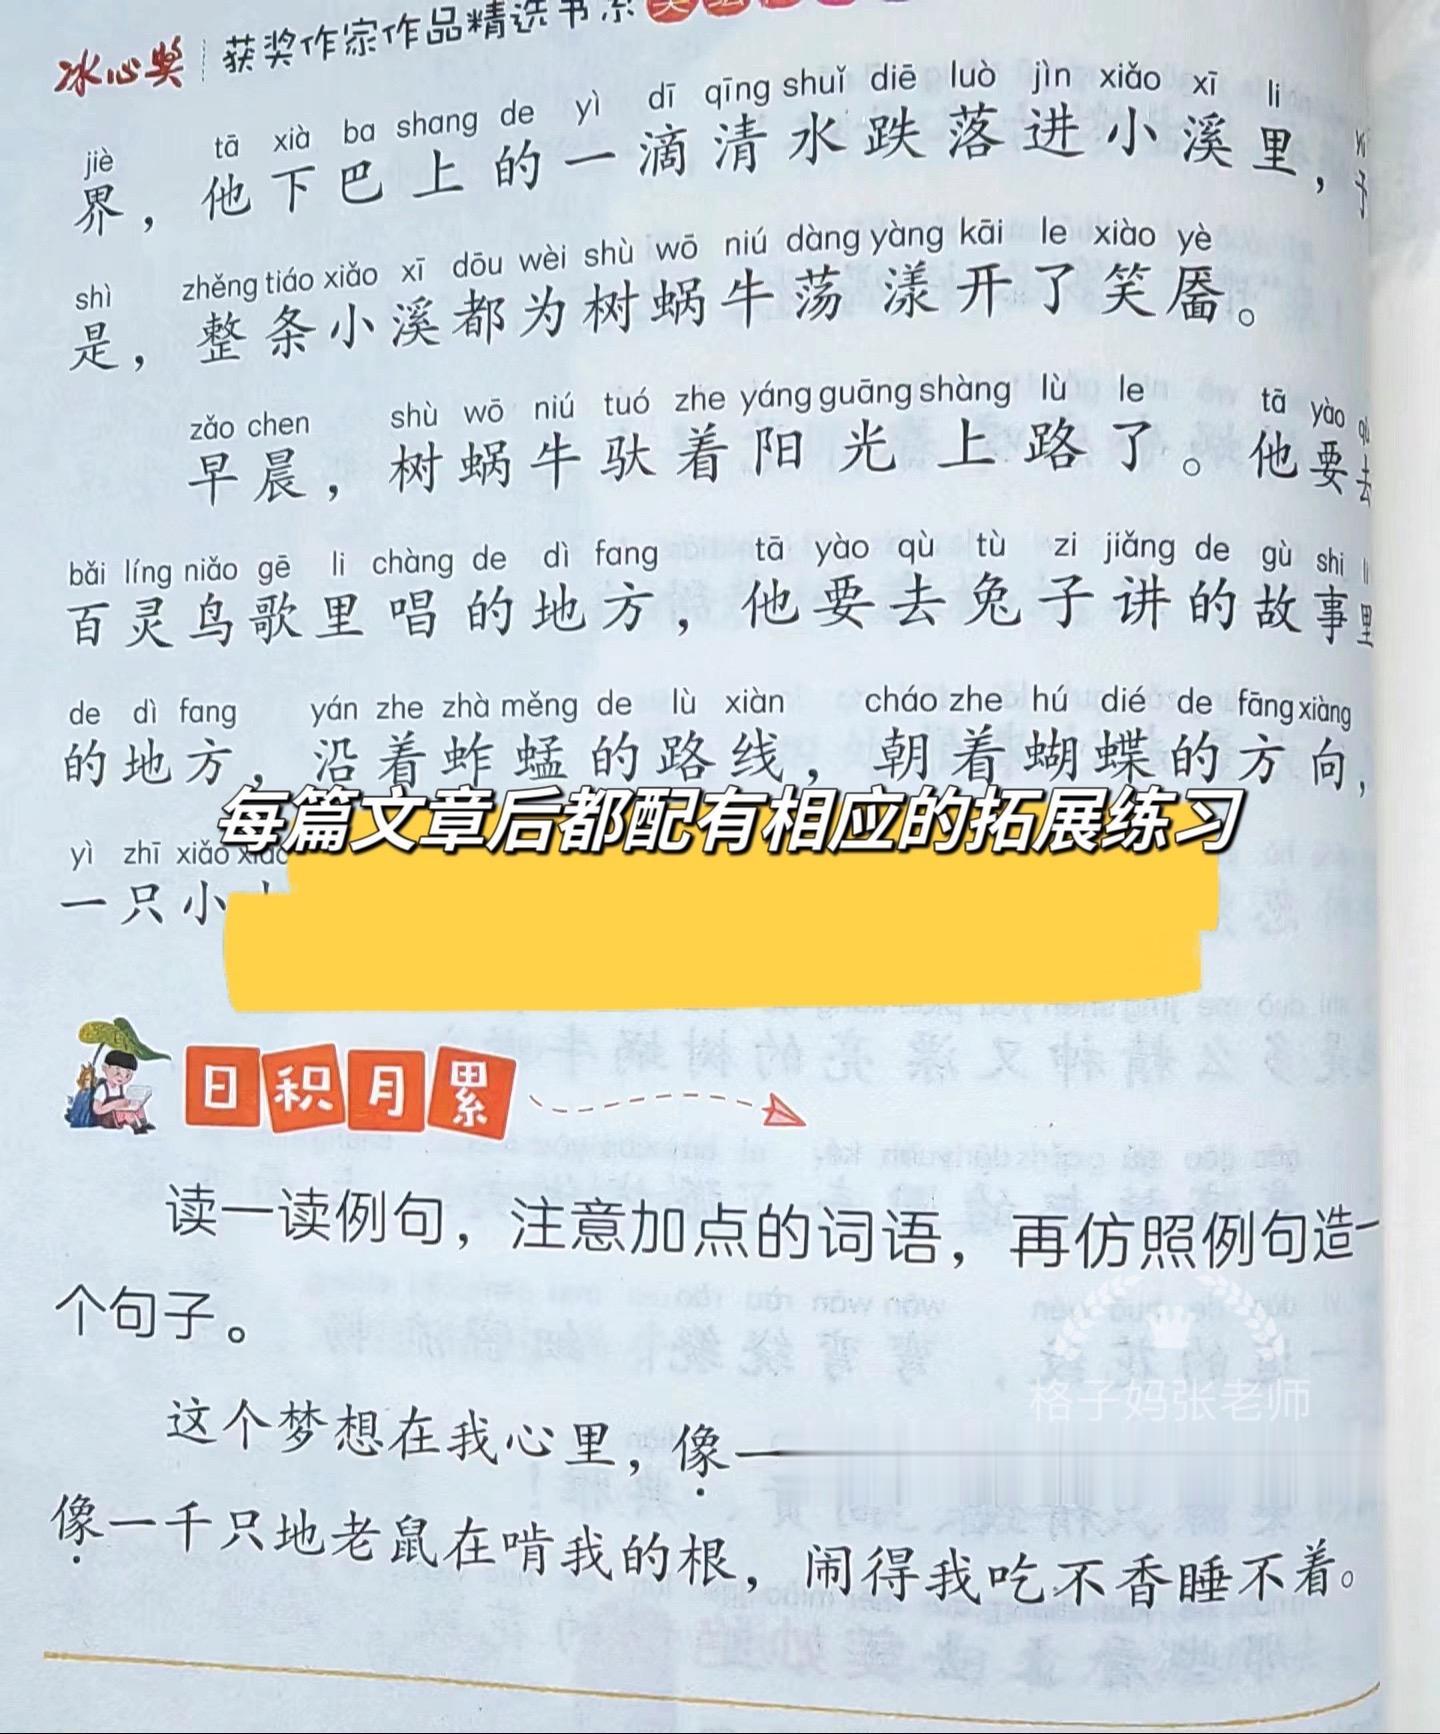 冰心奖 获奖作家作品精选书系
jiè tā xià ba shang de yì dī qīng shuǐ diē luò jìn xiǎo xī li
界，他下巴上的一滴清水跌落进小溪里，
shì zhěng tiáo xiǎo xī dōu wèi shù wō niú dàng yàng kāi le xiào yè
是，整条小溪都为树蜗牛荡漾开了笑靥。
zǎo chen shù wō niú tuó zhe yáng guāng shàng lù le tā yào
早晨，树蜗牛驮着阳光上路了。他要去
bǎi líng niǎo gē li chàng de dì fang tā yào qù tù zi jiǎng de gù shi li
百灵鸟歌里唱的地方，他要去兔子讲的故事里
de dì fang yán zhe zhà měng de lù xiàn cháo zhe hú dié de fāng xiàng
的地方，沿着蚱蜢的路线，朝着蝴蝶的方向，
每篇文章后都配有相应的拓展练习
yì zhī xiǎo
一只小
日积月累
读一读例句，注意加点的词语，再仿照例句造一
个句子。
格子妈张老师
这个梦想在我心里，像一
像一千只地老鼠在啃我的根，闹得我吃不香睡不着。